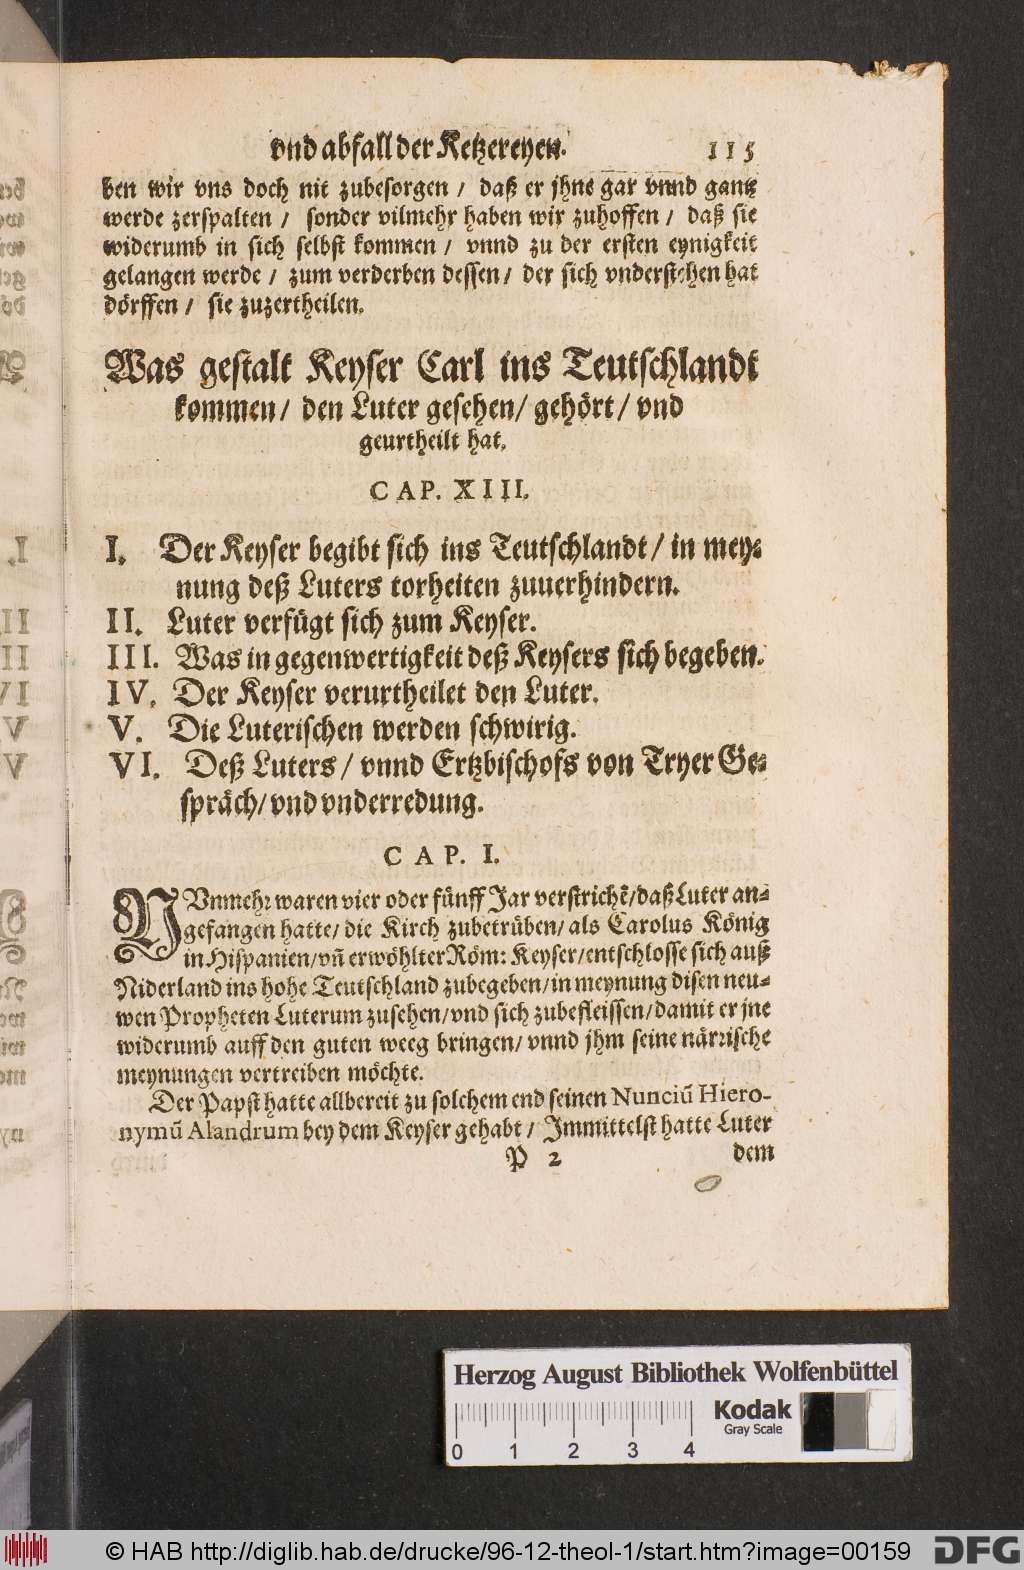 vnd abfall der Ketzereyen. 115
ben wir vns doch nit zubesorgen / daß er jhne gar vnnd gantz
werde zerspalten / sonder vilmehr haben wir zuhoffen / daß sie
widerumb in sich selbst kommen / vnnd zu der ersten eynigkeit
gelangen werde / zum verderben dessen / der sich vnderstehen hat
dörffen / sie zuzertheilen.
Was gestalt Keyser Carl ins Teutschlandt
kommen / den Luter gesehen / gehört / vnd
geurtheilt hat.
CAP. XIII.
I. Der Keyser begibt sich ins Teutschlandt / in mey-
nung deß Luters torheiten zuuerhindern.
II. Luter verfügt sich zum Keyser.
III. Was in gegenwertigkeit deß Keysers sich begeben.
IV. Der Keyser verurtheilet den Luter.
V. Die Luterischen werden schwirig.
VI. Deß Luters / vnnd Ertzbischofs von Tryer Ge-
spräch / vnd vnderredung.
CAP. I.
NVnmehr waren vier oder fünff Jar verstrichẽ / daß Luter an-
gefangen hatte / die Kirch zubetrüben / als Carolus König
in Hispanien / vñ erwöhlter Röm: Keyser / entschlosse sich auß
Niderland ins hohe Teutschland zubegeben / in meynung disen neu-
wen Propheten Luterum zusehen / vnd sich zubefleissen / damit er jne
widerumb auff den guten weeg bringen / vnnd jhm seine närrische
meynungen vertreiben möchte.
Der Papst hatte allbereit zu solchem end seinen Nunciũ Hiero-
nymũ Alandrum bey dem Keyser gehabt / Jmmittelst hatte Luter
P 2 dem
Herzog August Bibliothek Wolfenbüttel
Kodak
Gray Scale
0 1 2 3 4
© HAB http://diglib.hab.de/drucke/96-12-theol-1/start.htm?image=00159 DFG